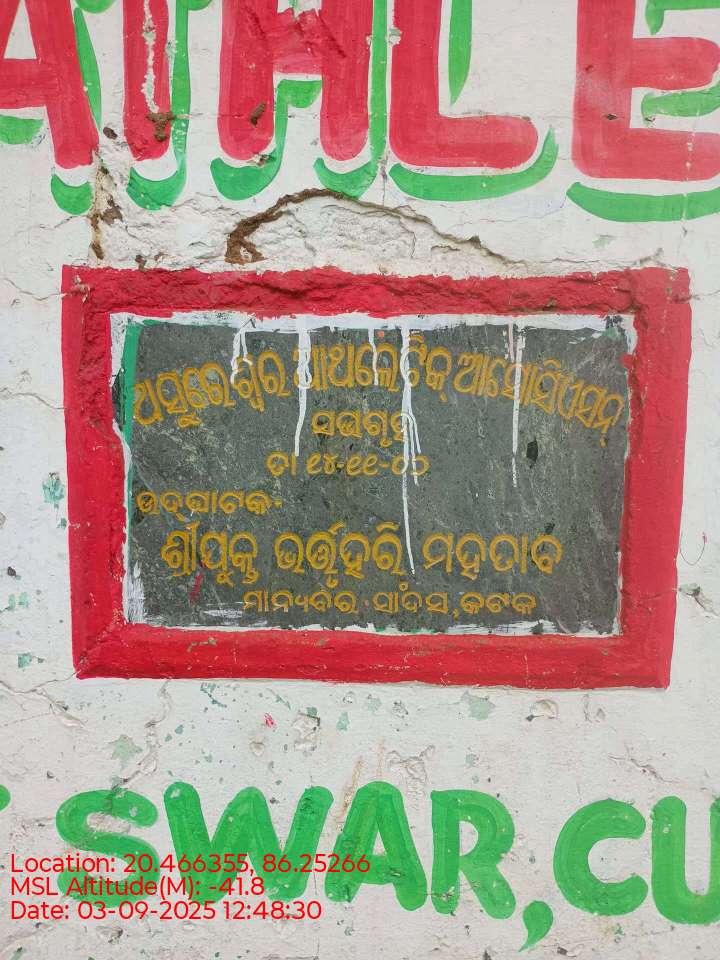 ATHLE
ଅସୁରେଶ୍ୱର ଆଥଲେଟିକ୍ ଆସୋସିଏସନ୍
ସଭାଗୃହ
ତା ୧୪-୧୧-୦୦
ଉଦ୍‌ଘାଟକ-
ଶ୍ରୀଯୁକ୍ତ ଭର୍ତ୍ତୃହରି ମହତାବ
ମାନ୍ୟବର ସାଂସଦ, କଟକ
SWAR, CU
Location: 20.466355, 86.25266
MSL Altitude(M): -41.8
Date: 03-09-2025 12:48:30